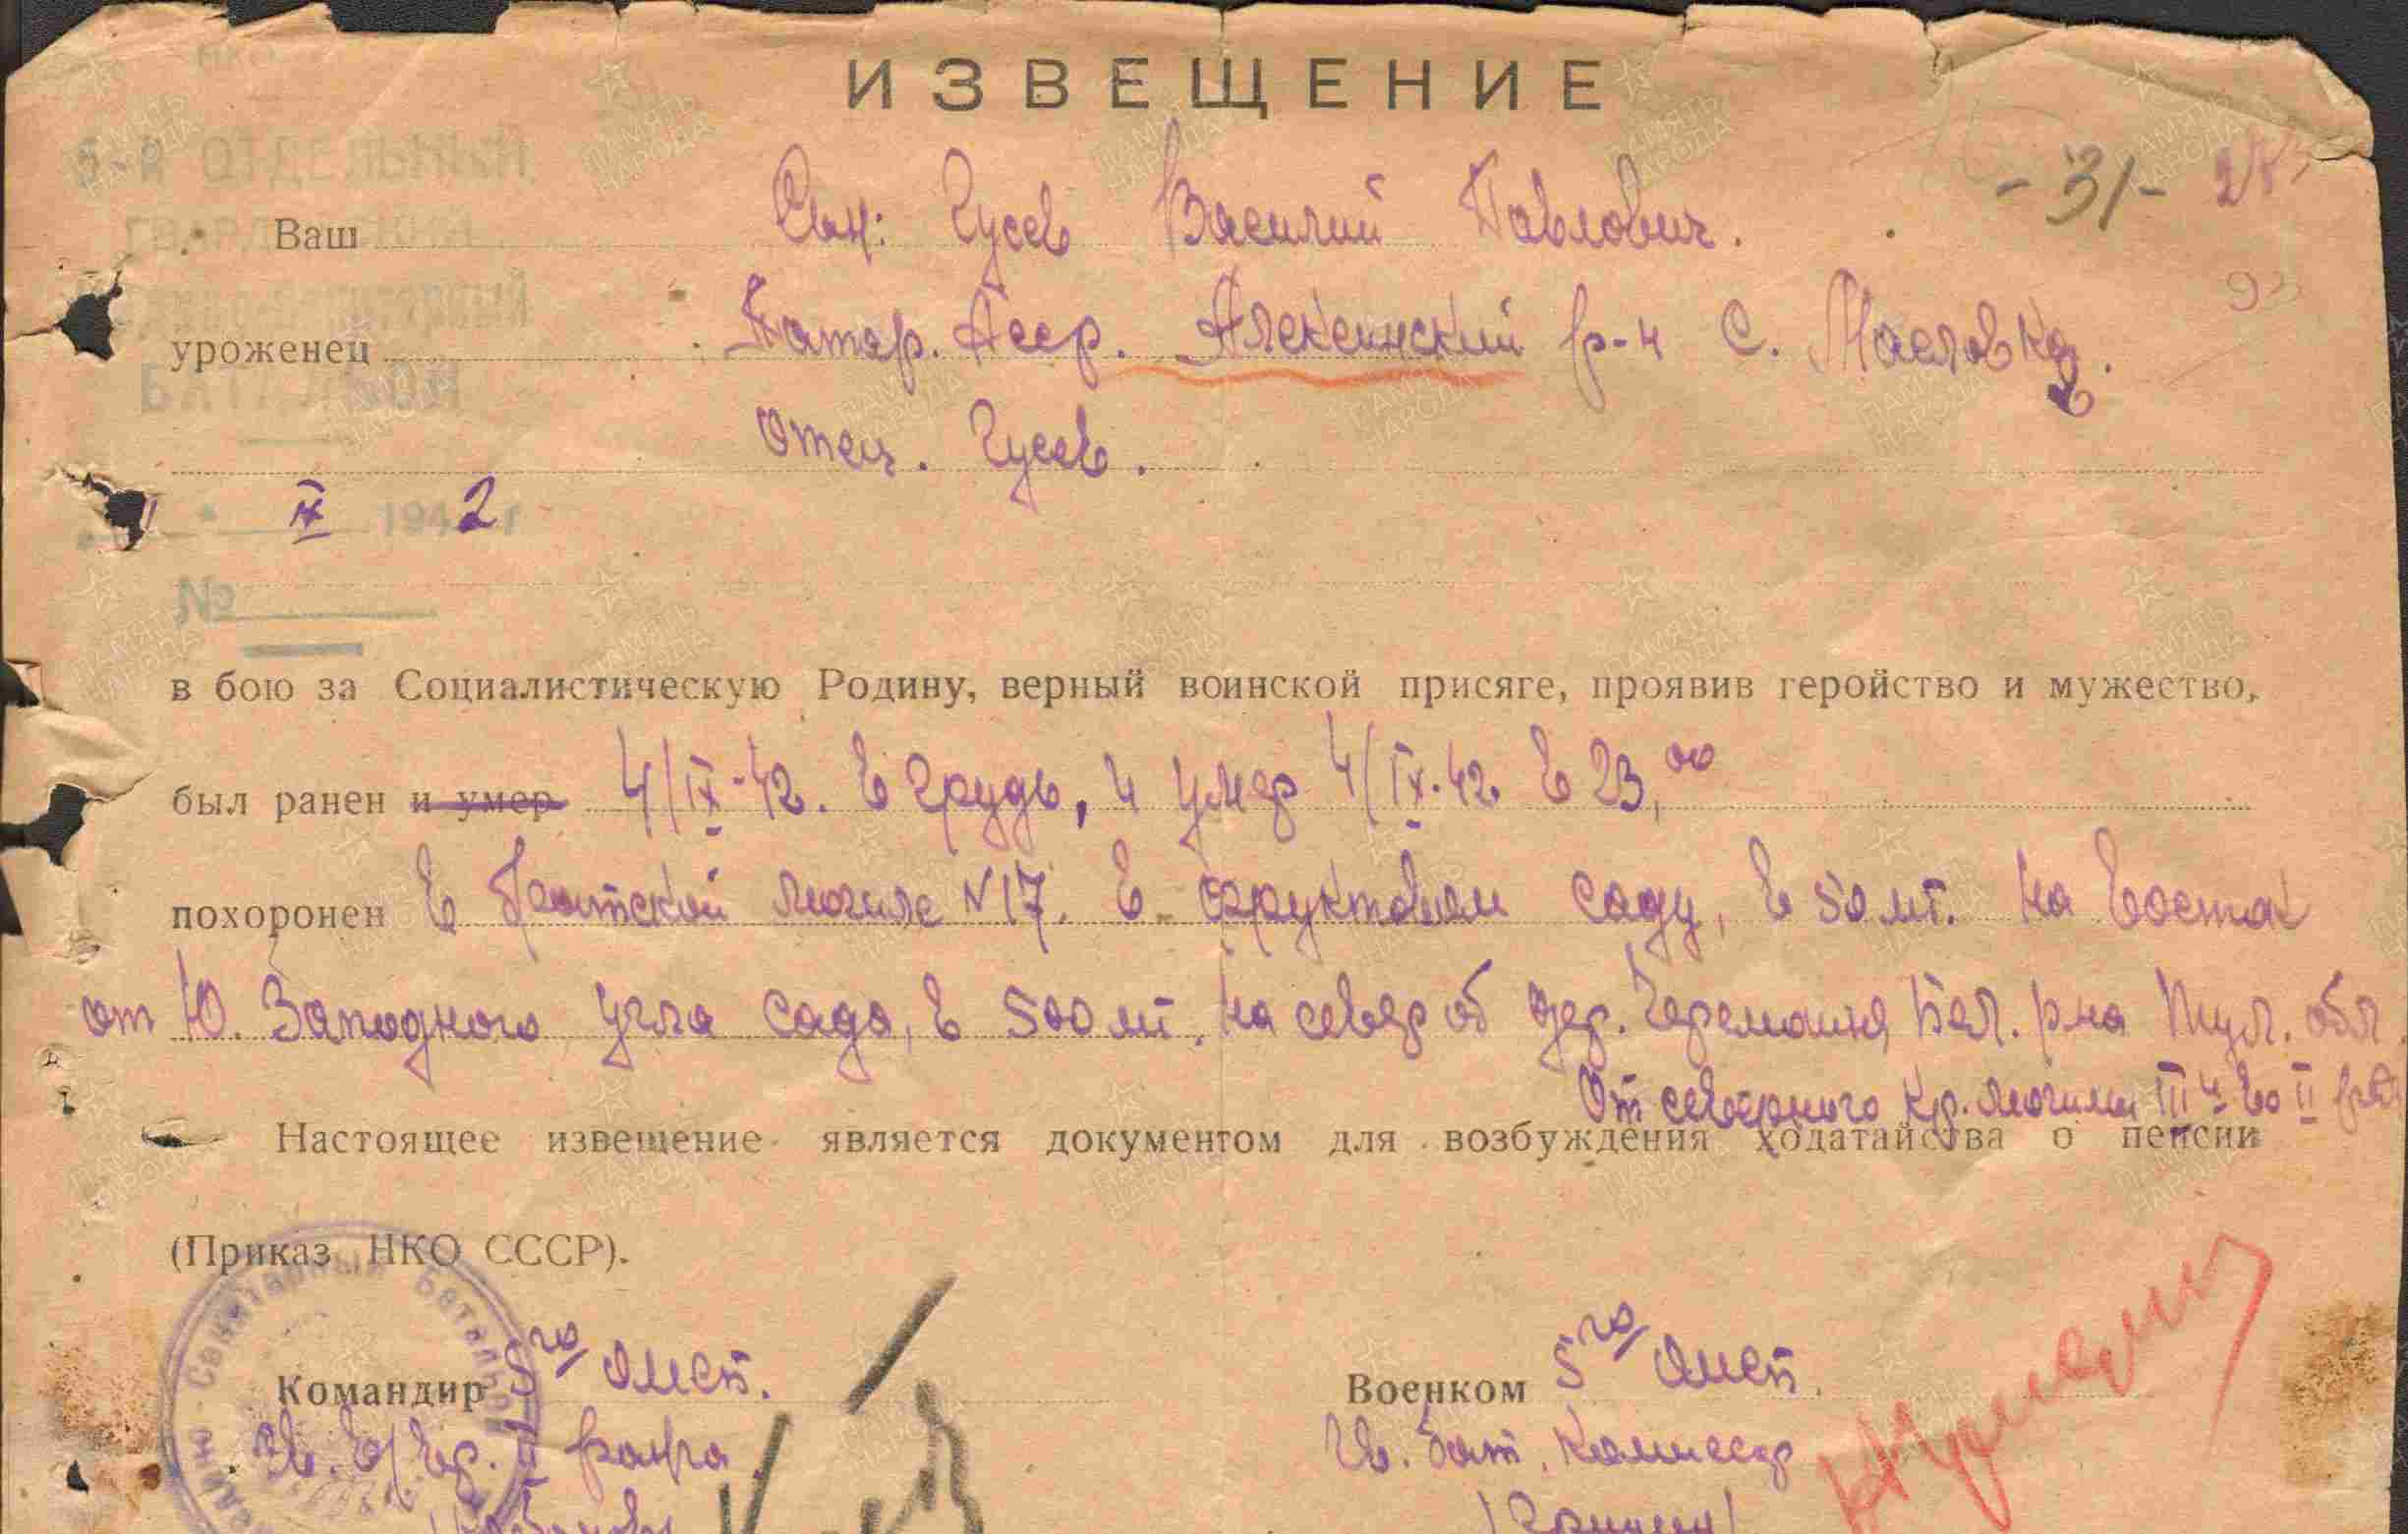 НКО
ИЗВЕЩЕНИЕ
5-Й ОТДЕЛЬНЫЙ
-31-
Ваш Сын: Гусев Василий Павлович.
93
уроженец Татар. Асср. Алексинский р-н С. Масловка.
БАТАЛЬОН
Отец. Гусев.
IX 1942 г
№
в бою за Социалистическую Родину, верный воинской присяге, проявив геройство и мужество,
был ранен и умер 4/IX-42. в грудь, и умер 4/IX.42 в 23,00
похоронен в братской могиле N 17. в фруктовом саду, в 50 мт. на восток
от Ю. Западного угла сада, в 500 мт. на север от дер. Бел. р-на Тул. обл
От северного кр. могилы III й во II
Настоящее извещение является документом для возбуждения ходатайства о пенсии
(Приказ НКО СССР).
Санитарный Батальон
Командир 5го Омсб.
Военком 5го Омсб.
Гв. в/вр. II ранга
Гв. бат. Комиссар
ПАМЯТЬ НАРОДА